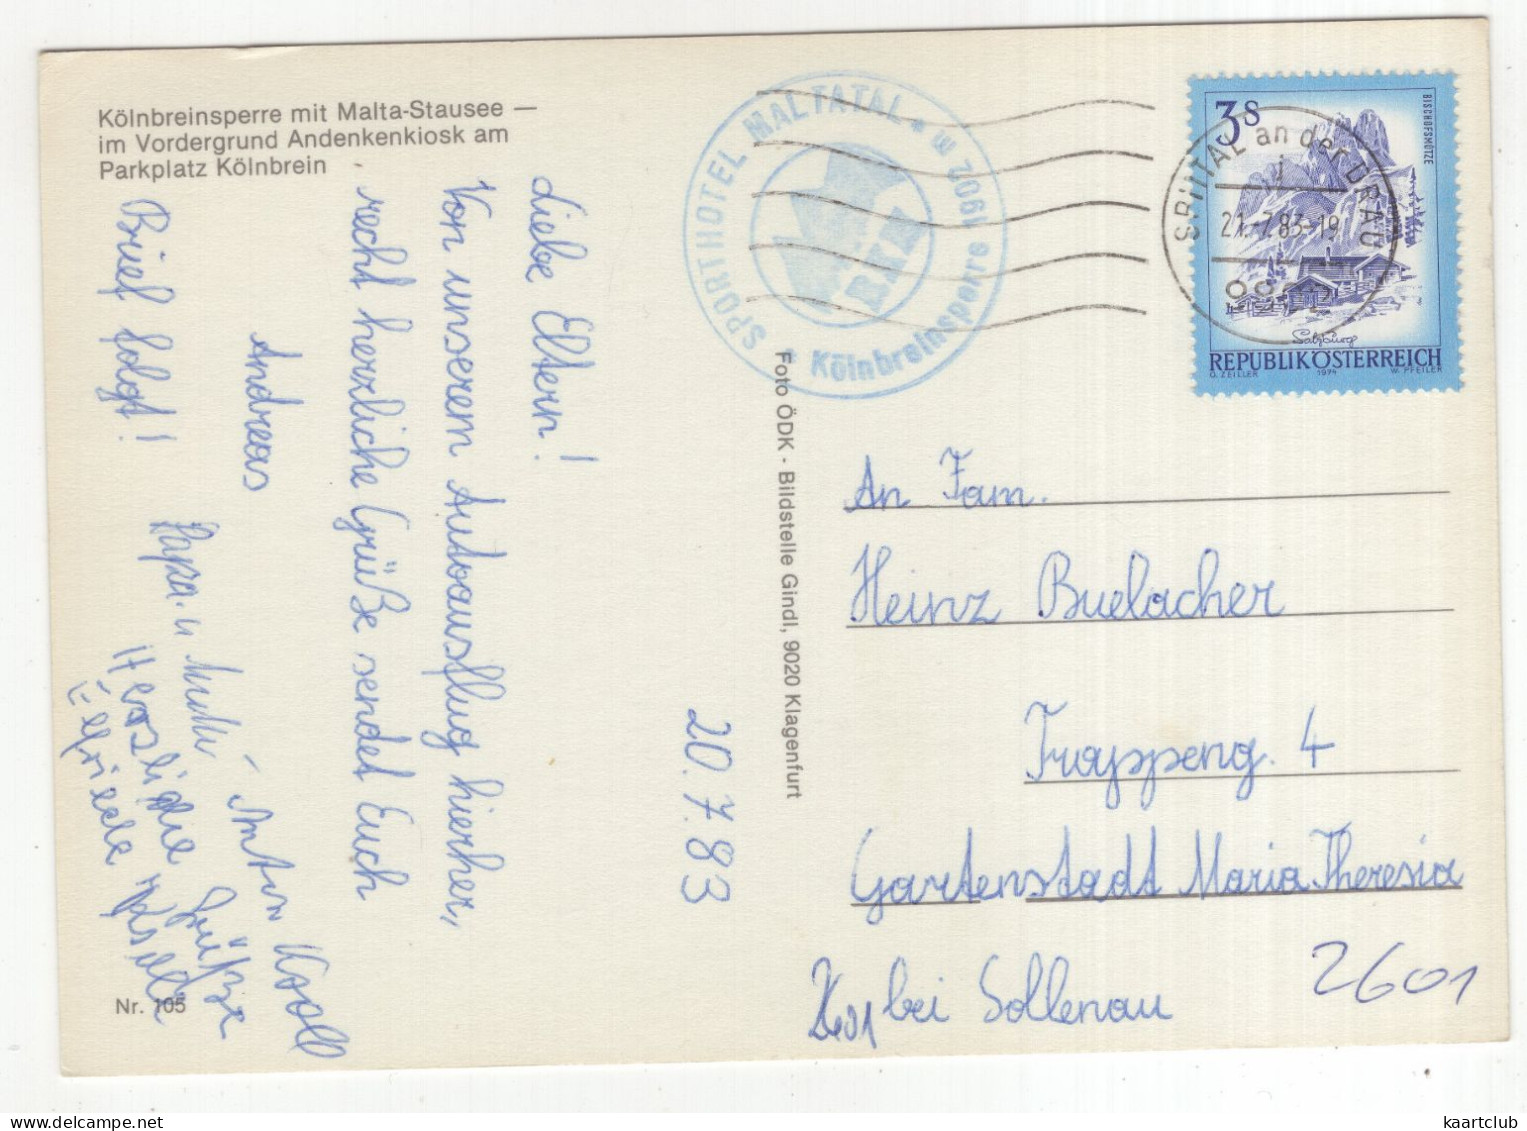 Kölnbreinsperre mit Malta-Stausee —
im Vordergrund Andenkenkiosk am
Parkplatz Kölnbrein
Liebe Eltern!
Von unserem Autoausflug hierher,
recht herzliche Grüße sendet Euch
Andreas
Brief folgt!
Papa u Mutti
Anton
Herzliche Grüße
Elfriede
20.7.83
Nr. 105
Foto ÖDK - Bildstelle Gindl, 9020 Klagenfurt
SPORTHOTEL MALTATAL * 1902 m
Kölnbreinsperre
SPITTAL an der DRAU
21.-7.83-19
3S
BISCHOFSMÜTZE
Salzburg
REPUBLIK ÖSTERREICH
O. ZEILLER 1974 W. PFEILER
An Fam.
Heinz Buelacher
Trappeng. 4
Gartenstadt Maria Theresia
2601 bei Sollenau
2601
kaartclub